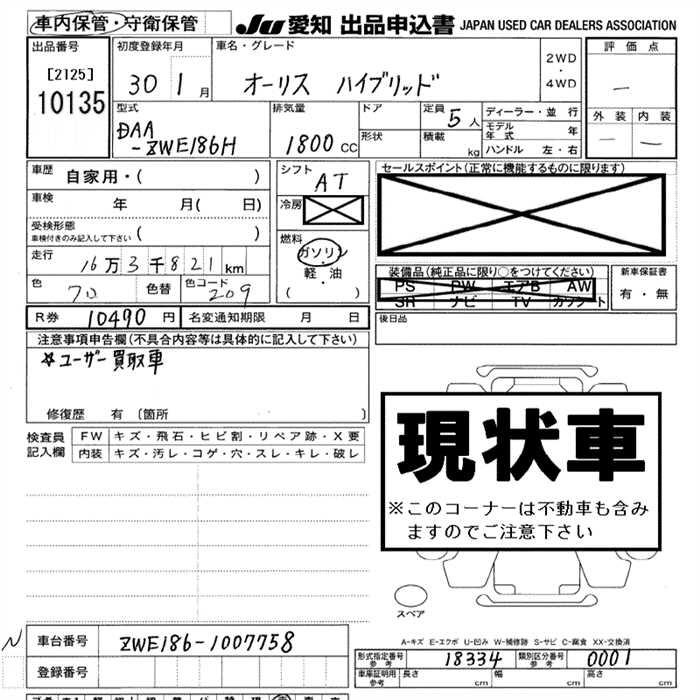 車内保管・守衛保管
JU 愛知 出品申込書 JAPAN USED CAR DEALERS ASSOCIATION
出品番号
[2125]
10135
初度登録年月
30 1 月
車名・グレード
オーリス ハイブリッド
2WD
・
4WD
評価点
―
外装 内装
― ―
型式
DAA
-ZWE186H
排気量
1800 CC
ドア
形状
定員 5 人
積載 kg
ディーラー・並行
モデル年式 年
ハンドル 左・右
車歴 自家用・( )
車検 年 月( 日)
受検形態
車検付きのみ記入して下さい ( )
走行 16万3千821km
色 色替 色コード 209
シフト
AT
冷房
燃料
ガソリン
・
軽・油
( )
セールスポイント(正常に機能するものに限ります)
装備品(純正品に限り○をつけてください)
PS PW エアB AW
SR ナビ TV カワシート
新車保証書
有・無
R券 10490 円 名変通知期限 月 日
後日品
注意事項申告欄(不具合内容等は具体的に記入して下さい)
☆ユーザー買取車
修復歴 有 〔箇所 〕
検査員
記入欄
FW キズ・飛石・ヒビ割・リペア跡・X要
内装 キズ・汚レ・コゲ・穴・スレ・キレ・破レ
現状車
※このコーナーは不動車も含み
ますのでご注意下さい
スペア
A-キズ E-エクボ U-凹み W-補修跡 S-サビ C-腐食 XX-交換済
N 車台番号 ZWE186-1007758
登録番号
形式指定番号 参考 18334 類別区分番号 参考 0001
車庫証明用 参考 長さ cm 幅 cm 高さ cm